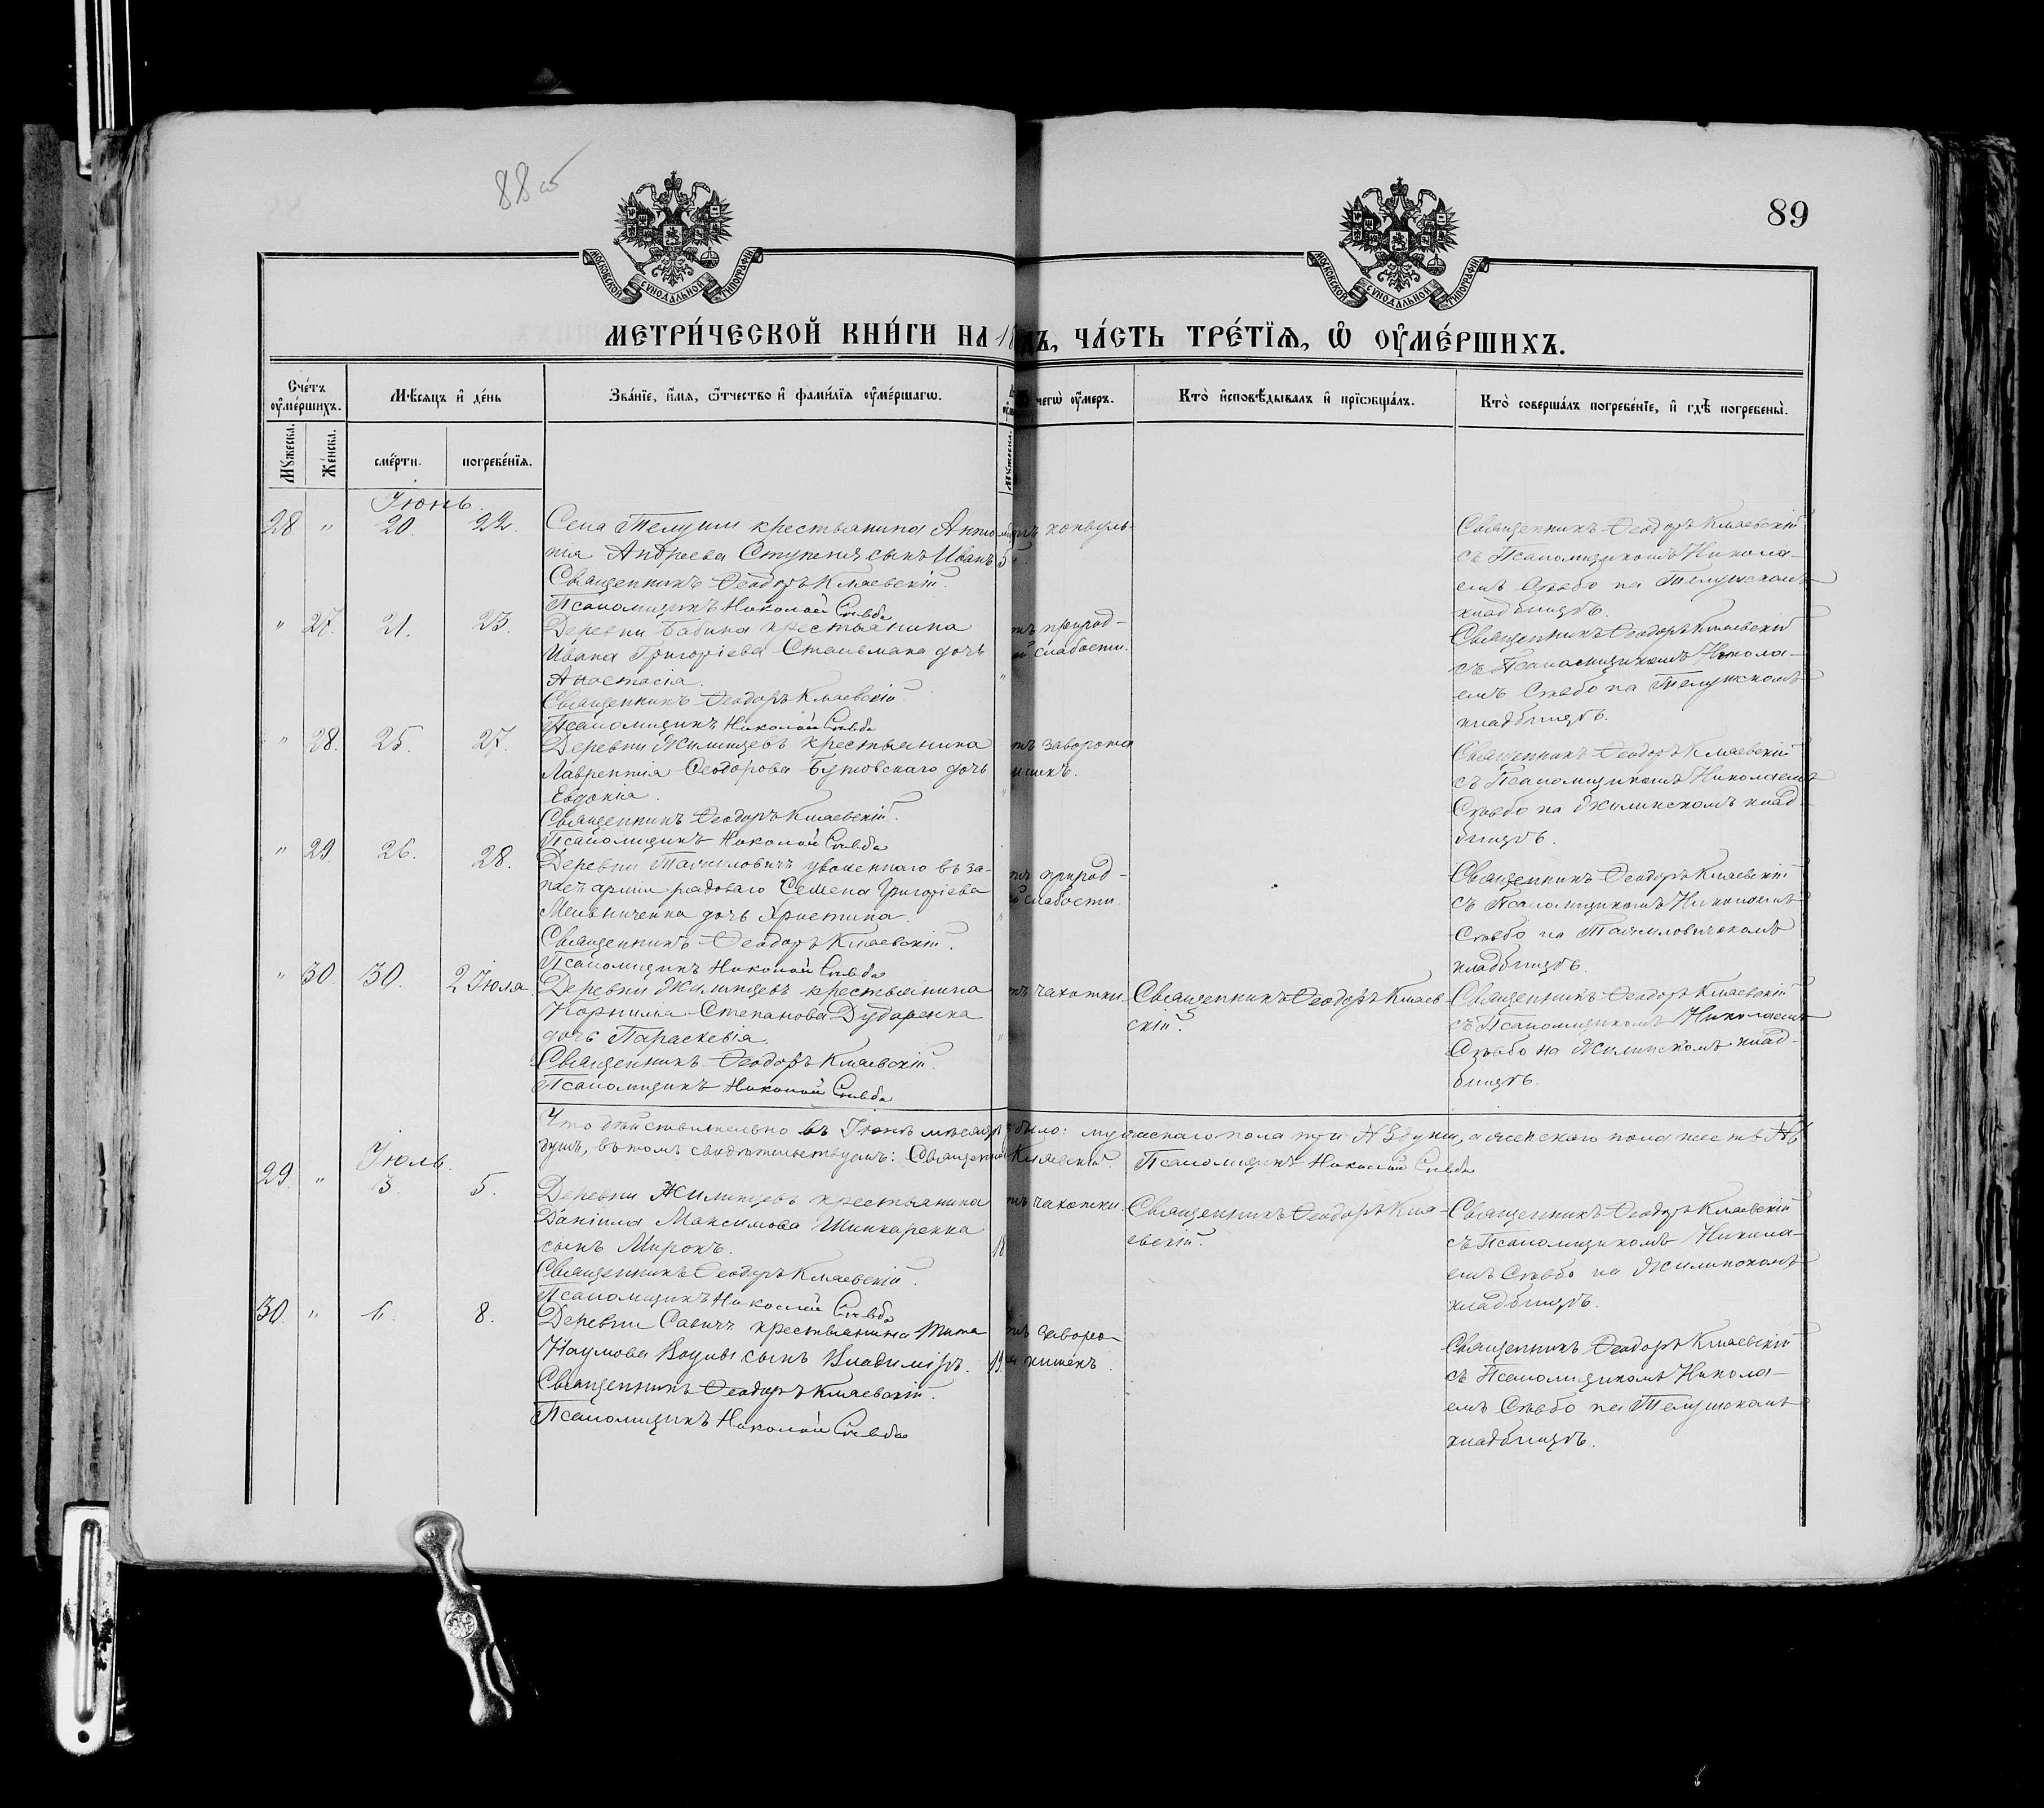 88 об
89
МОСКОВСКОЙ СѴНОДАЛЬНОЙ ТИПОГРАФІИ
МОСКОВСКОЙ СѴНОДАЛЬНОЙ ТИПОГРАФІИ
МЕТРИ́ЧЕСКОЙ КНИ́ГИ НА 18 ДЪ, ЧА́СТЬ ТРЕ́ТЇѦ, Ѡ ОУ҆МЕ́РШИХЪ.
Сче́тъ оу҆ме́ршихъ.
Мѣсѧцъ и҆ де́нь
Зва́нїе, и҆́мѧ, ѻ҆́тчество и҆ фами́лїѧ оу҆ме́ршагѡ.
чегѡ̀ оу҆́меръ.
Кто̀ и҆сповѣ́дывалъ и҆ прїѡбща́лъ.
Кто̀ соверша́лъ погребе́нїе, и҆ гдѣ̀ погребены̀.
Мꙋ́жеска.
Же́нска.
сме́рти.
погребе́нїѧ.
Мꙋ́жеска.
Іюнь.
28 " 20. 22. Села Телуши крестьянина Анто-
нія Андреева Ступеня сынъ Иванъ 5
Священникъ Ѳеодоръ Кмаевскій.
Псаломщикъ Николай Сльбо
конвуль-
Священникъ Ѳеодоръ Кмаевскій
съ Псаломщикомъ Никола-
емъ Сльбо на Телушскомъ
кладбищѣ.
" 27. 21. 23. Деревни Бабина крестьянина
Ивана Григоріева Стельмаха дочь
Анастасія.
Священникъ Ѳеодоръ Кмаевскій
Псаломщикъ Николай Сльбо
тъ природ-
й слабости.
Священникъ Ѳеодоръ Кмаевскій
съ Псаломщикомъ Никола-
емъ Сльбо на Телушскомъ
кладбищѣ.
" 28. 25. 27. Деревни Жилинцевъ крестьянина
Лаврентія Ѳеодорова Бутовскаго дочь
Евдокія.
Священникъ Ѳеодоръ Кмаевскій.
Псаломщикъ Николай Сльбо
тъ заворота
ишикъ.
Священникъ Ѳеодоръ Кмаевскій
съ Псаломщикомъ Николаемъ
Сльбо на Жилинскомъ клад-
бищѣ.
" 29 26. 28. Деревни Тачиловичъ уволеннаго въ за-
пасъ арміи рядоваго Семена Григоріева
Мельниченка дочь Христина.
Священникъ Ѳеодоръ Кмаевскій.
Псаломщикъ Николай Сльбо
тъ природ-
й слабости.
Священникъ Ѳеодоръ Кмаевскій
съ Псаломщикомъ Николаемъ
Сльбо на Тачиловичскомъ
кладбищѣ.
" 30 30. 2 Іюля. Деревни Жилинцевъ крестьянина
Корнила Степанова Дударенка
дочь Параскевія.
Священникъ Ѳеодоръ Кмаевскій.
Псаломщикъ Николай Сльбо
тъ чахотки.
Священникъ Ѳеодоръ Кмаев-
скій.
Священникъ Ѳеодоръ Кмаевскій
съ Псаломщикомъ Николаемъ
Сльбо на Жилинскомъ клад-
бищѣ.
Что дѣйствительно въ Іюнѣ мѣсяцѣ было: мужескаго пола три № 3 души, а женскаго пола шесть № 6
душъ, въ томъ свидѣтельствуемъ: Священн Кмаевскій. Псаломщикъ Николай Сльбо
Іюль.
29. " 3. 5. Деревни Жилинцевъ крестьянина
Даніила Максимова Шинкаренка
сынъ Миронъ. 18
Священникъ Ѳеодоръ Кмаевскій.
Псаломщикъ Николай Сльбо
тъ чахотки.
Священникъ Ѳеодоръ Кма-
евскій.
Священникъ Ѳеодоръ Кмаевскій
съ Псаломщикомъ Никола-
емъ Сльбо на Жилинскомъ
кладбищѣ.
30. " 6. 8. Деревни Савичъ крестьянина Тита
Наумова Воулы сынъ Владиміръ. 19
Священникъ Ѳеодоръ Кмаевскій.
Псаломщикъ Николай Сльбо
тъ заворо-
кишекъ.
Священникъ Ѳеодоръ Кмаевскій
съ Псаломщикомъ Никола-
емъ Сльбо на Телушскомъ
кладбищѣ.